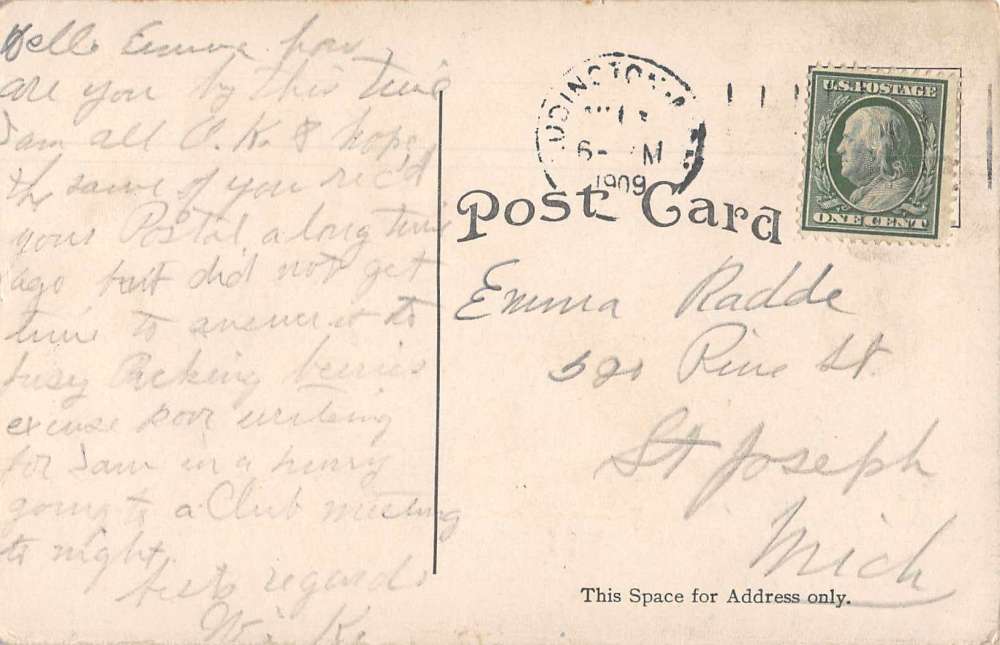 Hello Emma how
are you by this time
I am all O.K. & hope
the same of you rec'd
your Postal a long time
ago but did not get
time to answer it to
busy Packing berries
excuse poor writing
for I am in a hurry
going to a Club meeting
to night.
best regards
K.
UDINGTON
6- M
1909
U.S. POSTAGE
ONE CENT
Post Card
Emma Radde
Pine St.
St Joseph
Mich
This Space for Address only.